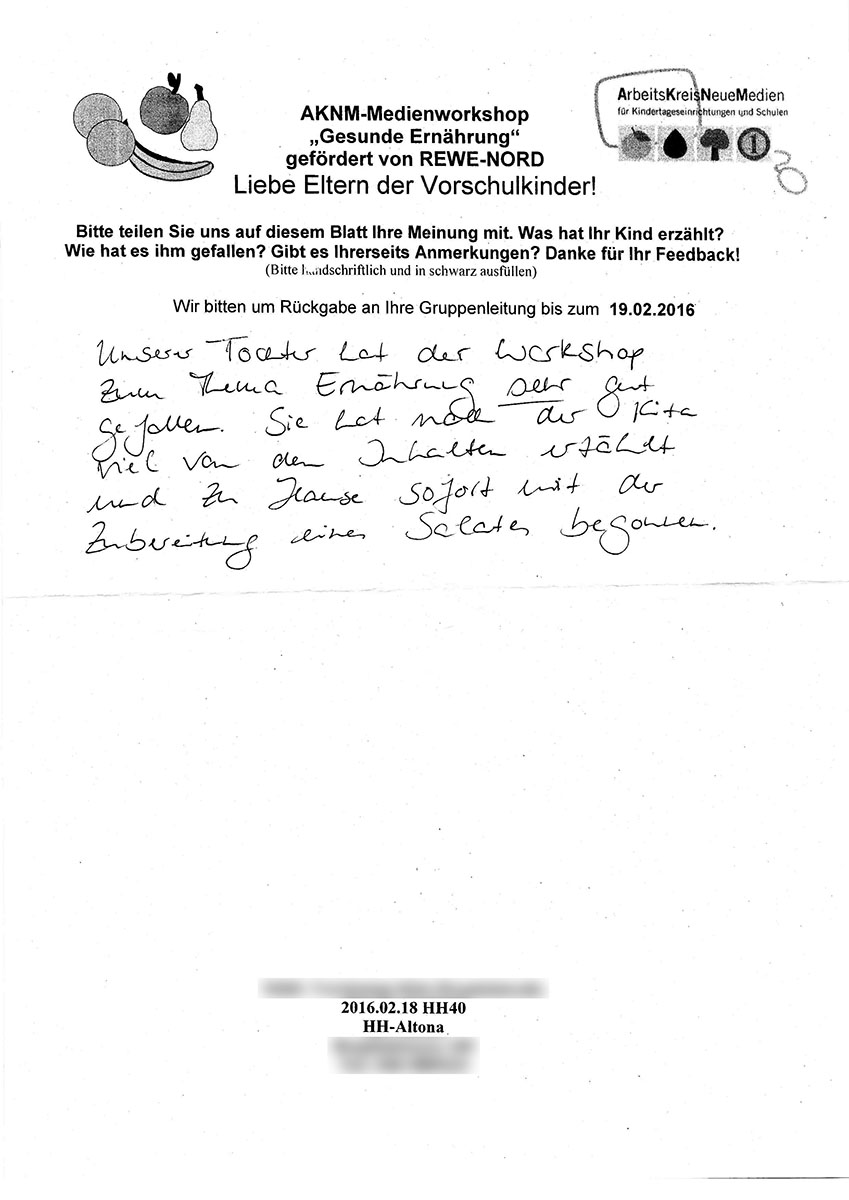 AKNM-Medienworkshop
„Gesunde Ernährung“
gefördert von REWE-NORD
ArbeitsKreisNeueMedien
für Kindertageseinrichtungen und Schulen
1
Liebe Eltern der Vorschulkinder!
Bitte teilen Sie uns auf diesem Blatt Ihre Meinung mit. Was hat Ihr Kind erzählt?
Wie hat es ihm gefallen? Gibt es Ihrerseits Anmerkungen? Danke für Ihr Feedback!
(Bitte handschriftlich und in schwarz ausfüllen)
Wir bitten um Rückgabe an Ihre Gruppenleitung bis zum 19.02.2016
Unserer Tochter hat der Workshop
zum Thema Ernährung sehr gut
gefallen. Sie hat nach der Kita
viel von den Inhalten erzählt
und zu Hause sofort mit der
Zubereitung eines Salates begonnen.
2016.02.18 HH40
HH-Altona